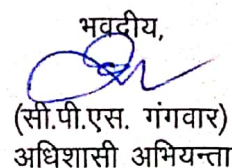 भवदीय,
(सी.पी.एस. गंगवार)
अधिशासी अभियन्ता